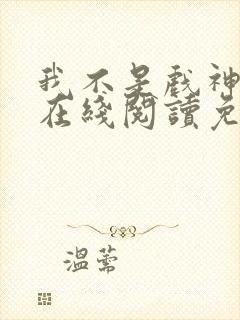 我不是戲神
在綫閱讀免
溫蕾